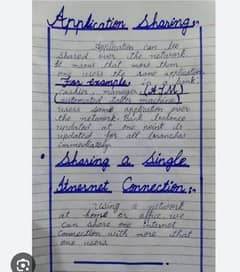 Application sharing:-
Application can be
shared over the network
It means that more than
one users the same application
For example, in a bank
cashier, manager (ATM)
(automated teller machine)
users same application over
the network. Bank balance
updated at one point is
updated for all branches
immediately.
• Sharing a Single
Internet Connection:-
Using a network
at home or office we
can share one internet
connection with more that
one users